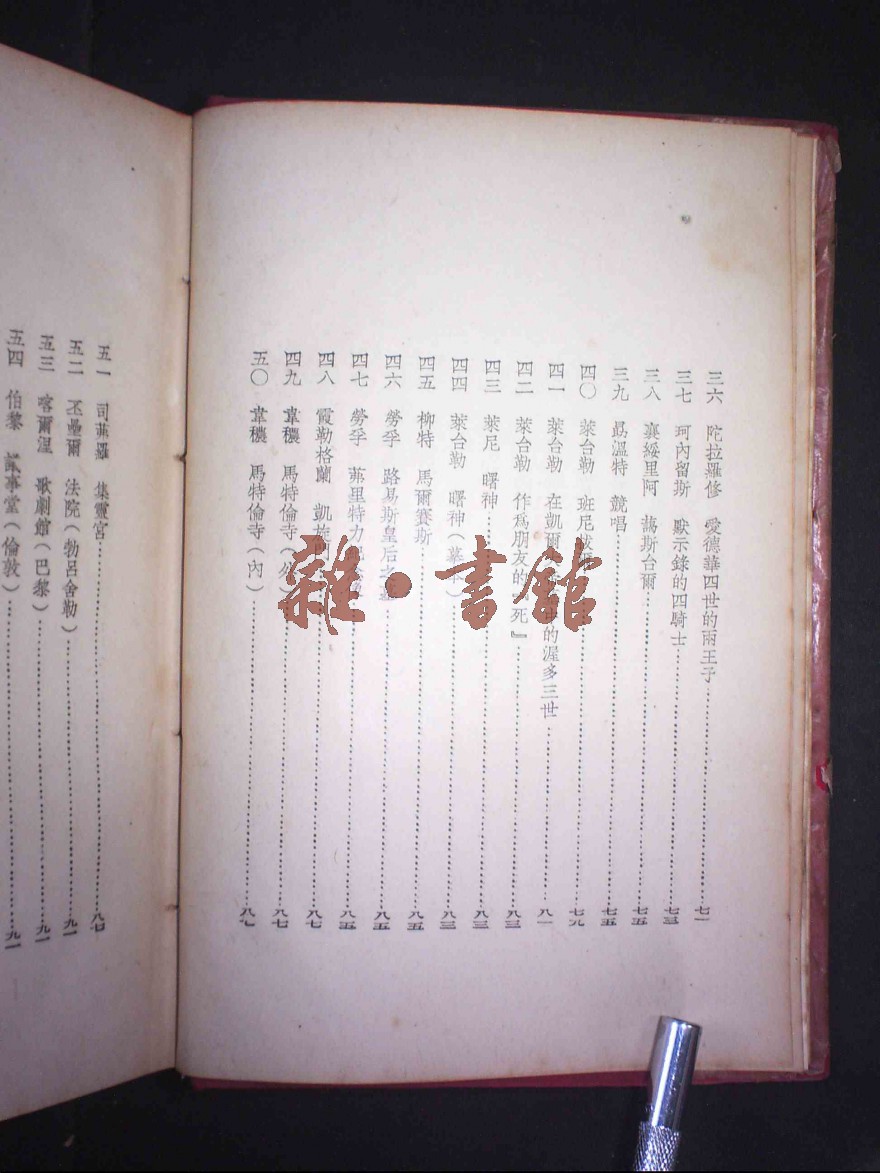 三六 陀拉羅修 愛德華四世的兩王子 七一
三七 珂內留斯 默示錄的四騎士 七三
三八 襄綏里阿 蕩斯台爾 七五
三九 勗溫特 競唱 七五
四〇 萊台勒 班尼 七九
四一 萊台勒 在凱爾 的渥多三世 八一
四二 萊台勒 作爲朋友的『死』 八三
四三 萊尼 曙神 八三
四四 萊台勒 曙神(摹本) 八三
四五 柳特 馬爾賽斯 八五
四六 勞孚 路易斯皇后之墓 八五
四七 勞孚 茀里特力 八五
四八 霞勒格蘭 凱旋門 八七
四九 韋穠 馬特倫寺(外) 八七
五〇 韋穠 馬特倫寺(內) 八七
五一 司茀羅 集靈宮 八七
五二 丕壘爾 法院(勃呂舍勒) 九一
五三 喀爾涅 歌劇館(巴黎) 九一
五四 伯黎 議事堂(倫敦) 九一
雜·書館